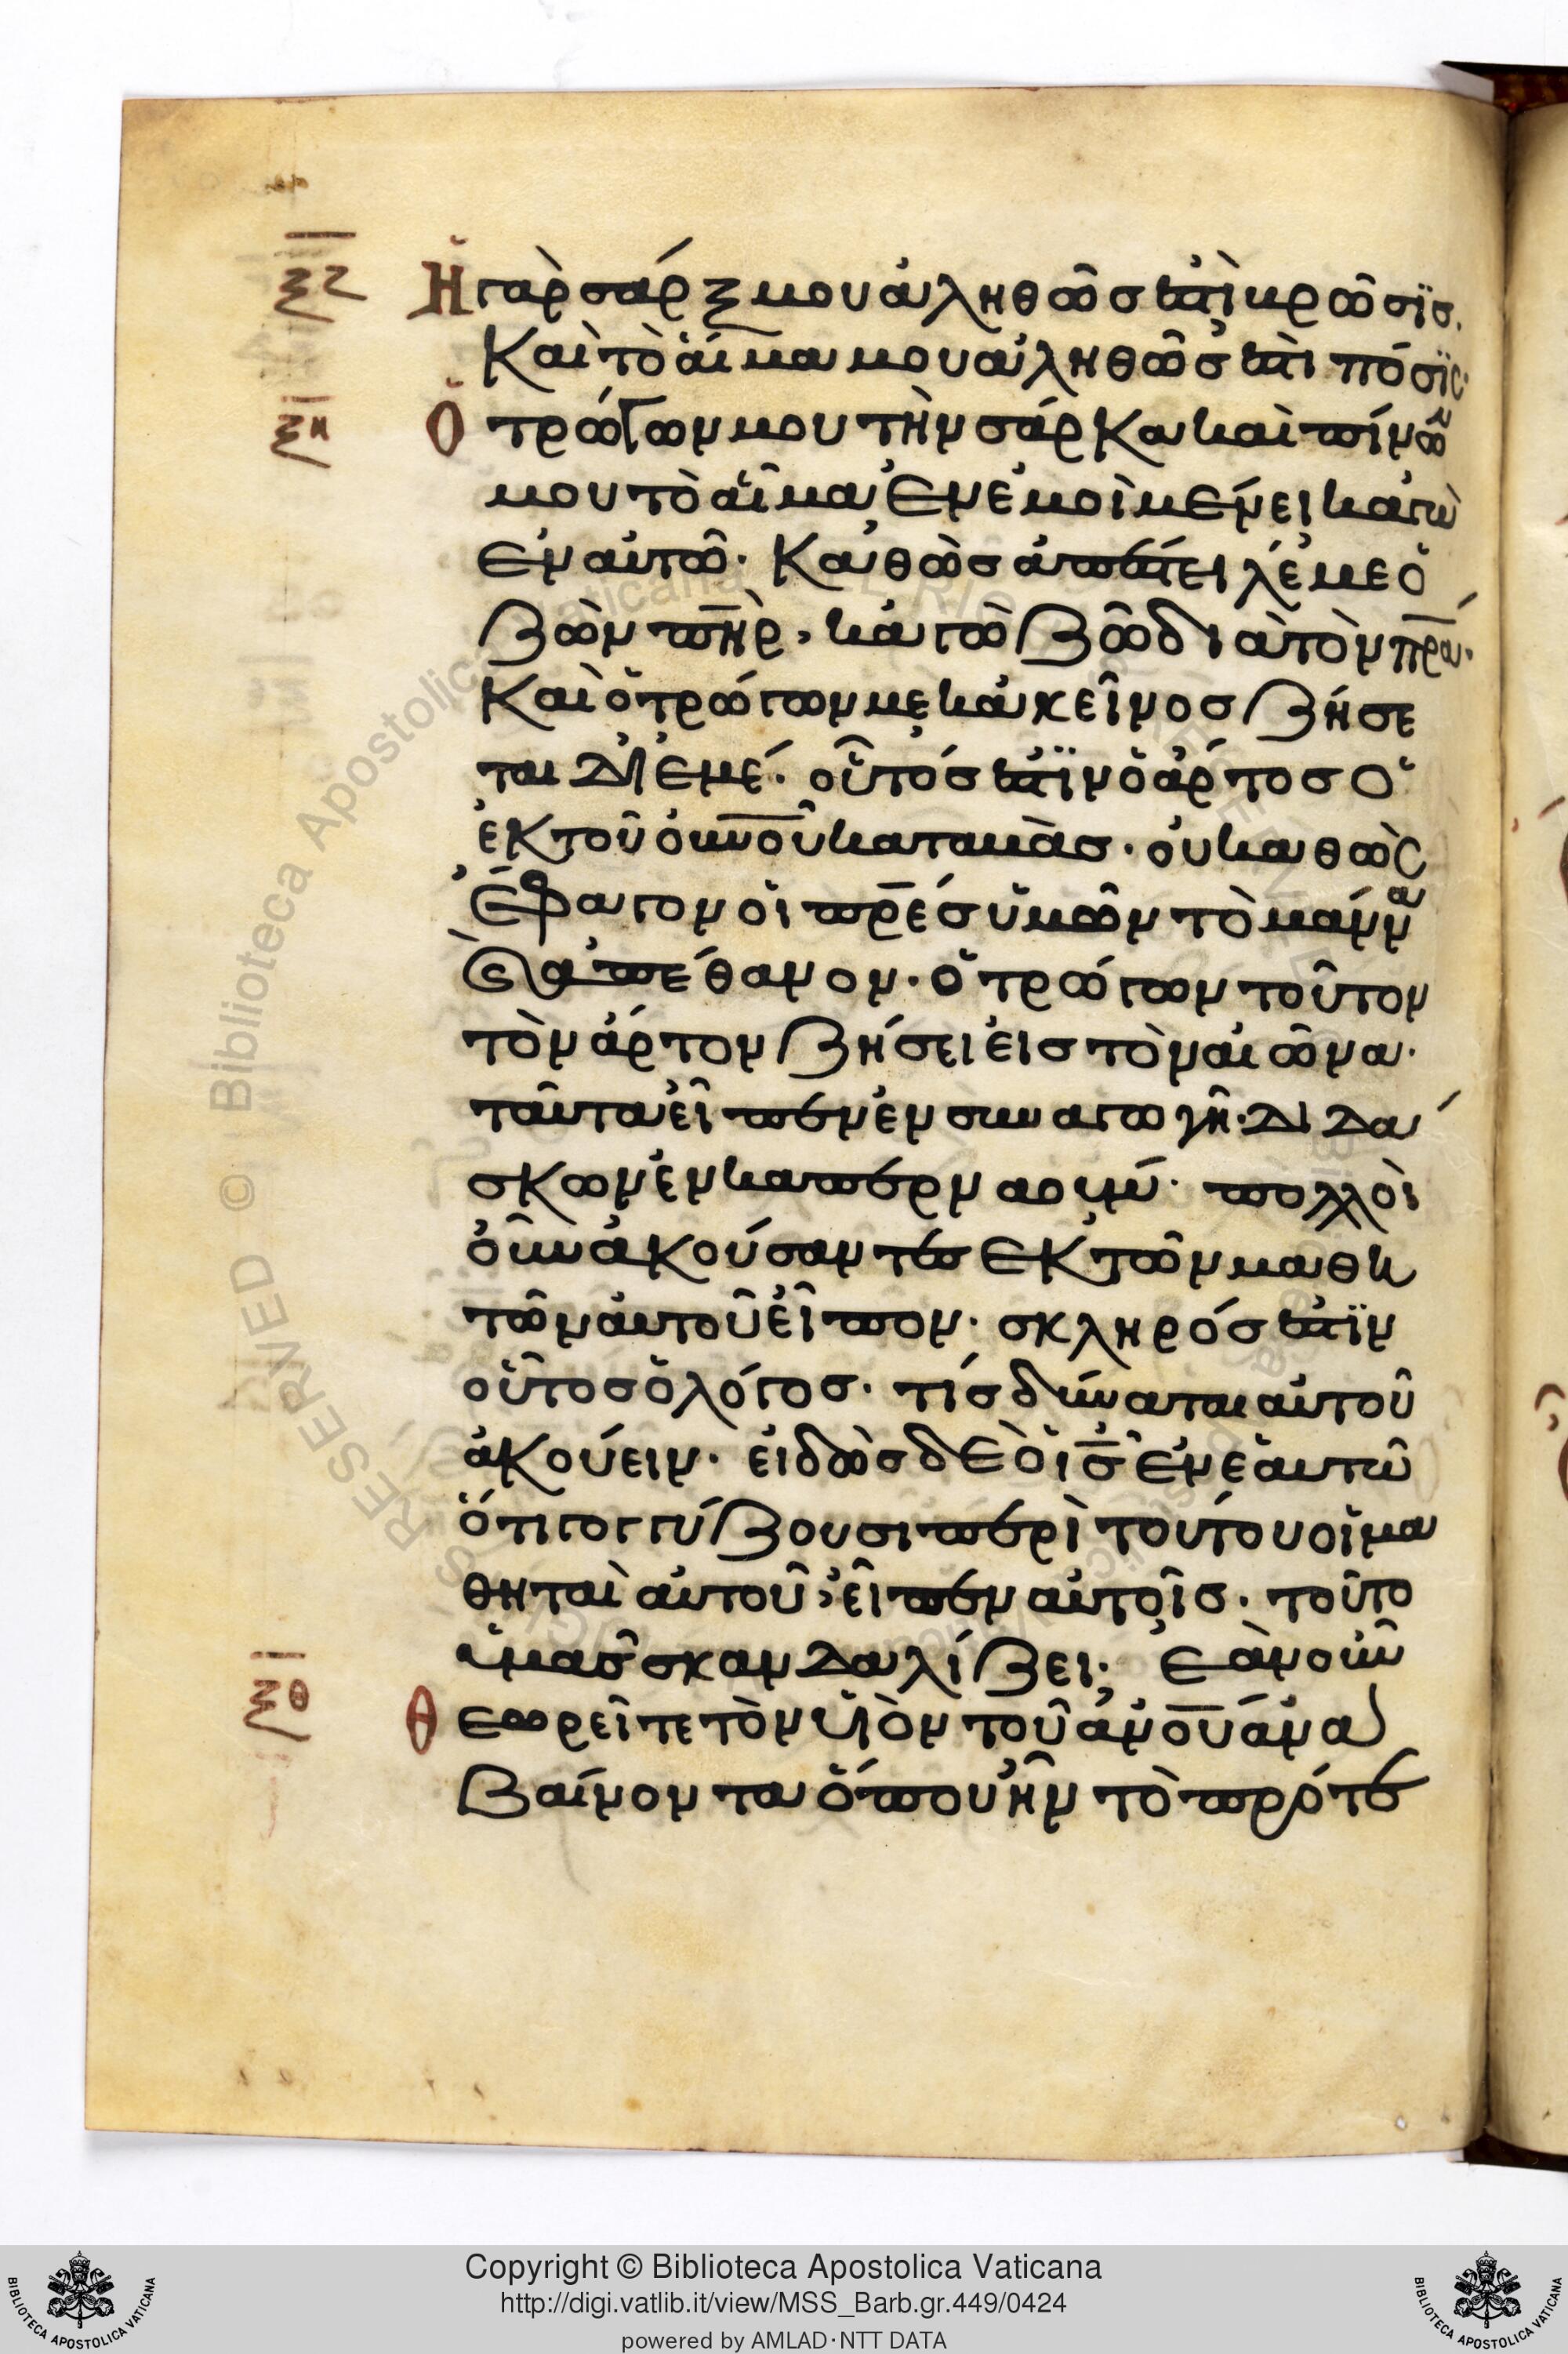 ξζ Ἡ γὰρ σάρξ μου ἀληθῶς ἐστὶ βρῶσϊς.
Καὶ τὸ αἷμα μου ἀληθῶς ἐστὶ πόσϊς·
ξη Ὁ τρώγων μου τὴν σάρκα καὶ πίνων
μου τὸ αἷμα ἐν ἐμοὶ μένει κἀγὼ
ἐν αὐτῶ· Καθὼς ἀπέστειλέ με ὁ
ζῶν πη̅ρ, κἀγὼ ζῶ διὰ τὸν πρ̅α·
Καὶ ὁ τρώγων με κἀκεῖνος ζήσε
ται δι ἐμέ· οὗτός ἐστϊν ὁ ἄρτος ὁ
ἐκ τοῦ οὐν̅οῦ καταβάς· οὐ καθὼς
ἔφαγον οἱ πρ̅ές ὑμῶν τὸ μάννα
καὶ ἀπέθανον· ὁ τρώγων τοῦτον
τὸν ἄρτον ζήσει εἰς τὸν αἰῶνα·
ταῦτα εἶπεν ἐν συναγωγῆ· διδά
σκων ἐν καπερναούμ· πολλοὶ
οὖν ἀκούσαντες ἐκ τῶν μαθη
τῶν αὐτοῦ εἶπον· σκληρός ἐστϊν
οὗτος ὁ λόγος· τίς δύναται αὐτοῦ
ἀκούειν· εἰδὼς δὲ ὁ ι̅ς̅ ἐν ἑαυτῶ
ὅτι γογγύζουσι περὶ τούτου οἱ μα
θηταὶ αὐτοῦ, εἶπεν αὐτοῖς· τοῦτο
ὑμᾶς σκανδαλίζει; ἐὰν οὖν
ξθ Θεωρεῖτε τὸν υἱὸν τοῦ ἀν̅ο̅υ̅ ἀνα
βαίνοντα ὅπου ἦν τὸ πρότε
© Biblioteca Apostolica Vaticana
RESERVED
Copyright © Biblioteca Apostolica Vaticana
http://digi.vatlib.it/view/MSS_Barb.gr.449/0424
powered by AMLAD·NTT DATA
BIBLIOTECA APOSTOLICA VATICANA
BIBLIOTECA APOSTOLICA VATICANA